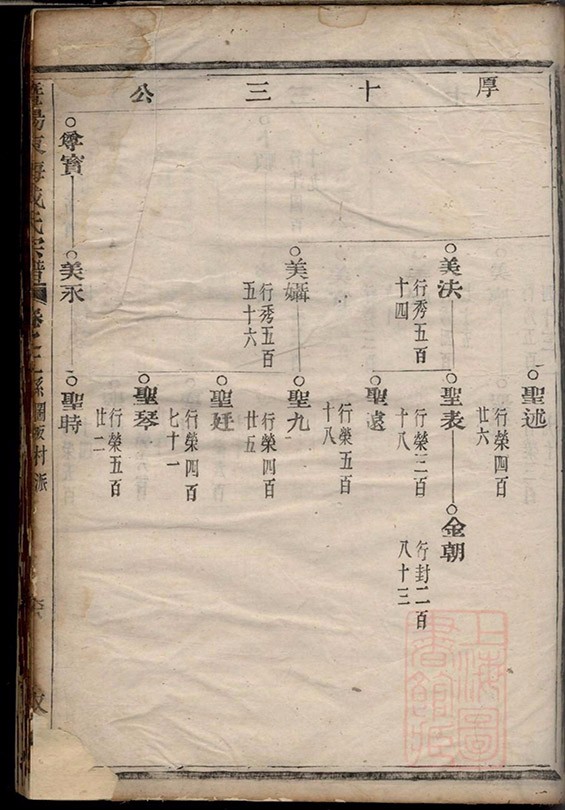 厚十三公
聖述
行榮四百
廿六
美法
行秀五百
十四
聖表
行榮三百
十八
金朝
行封二百
八十三
聖遠
行榮五百
十八
美孀
行秀五百
五十六
聖九
行榮四百
廿五
聖妊
行榮四百
七十一
聖琴
行榮五百
廿二
尊寶
美永
聖時
暨陽東海戚氏宗譜
系圖
村派
上海圖書館藏